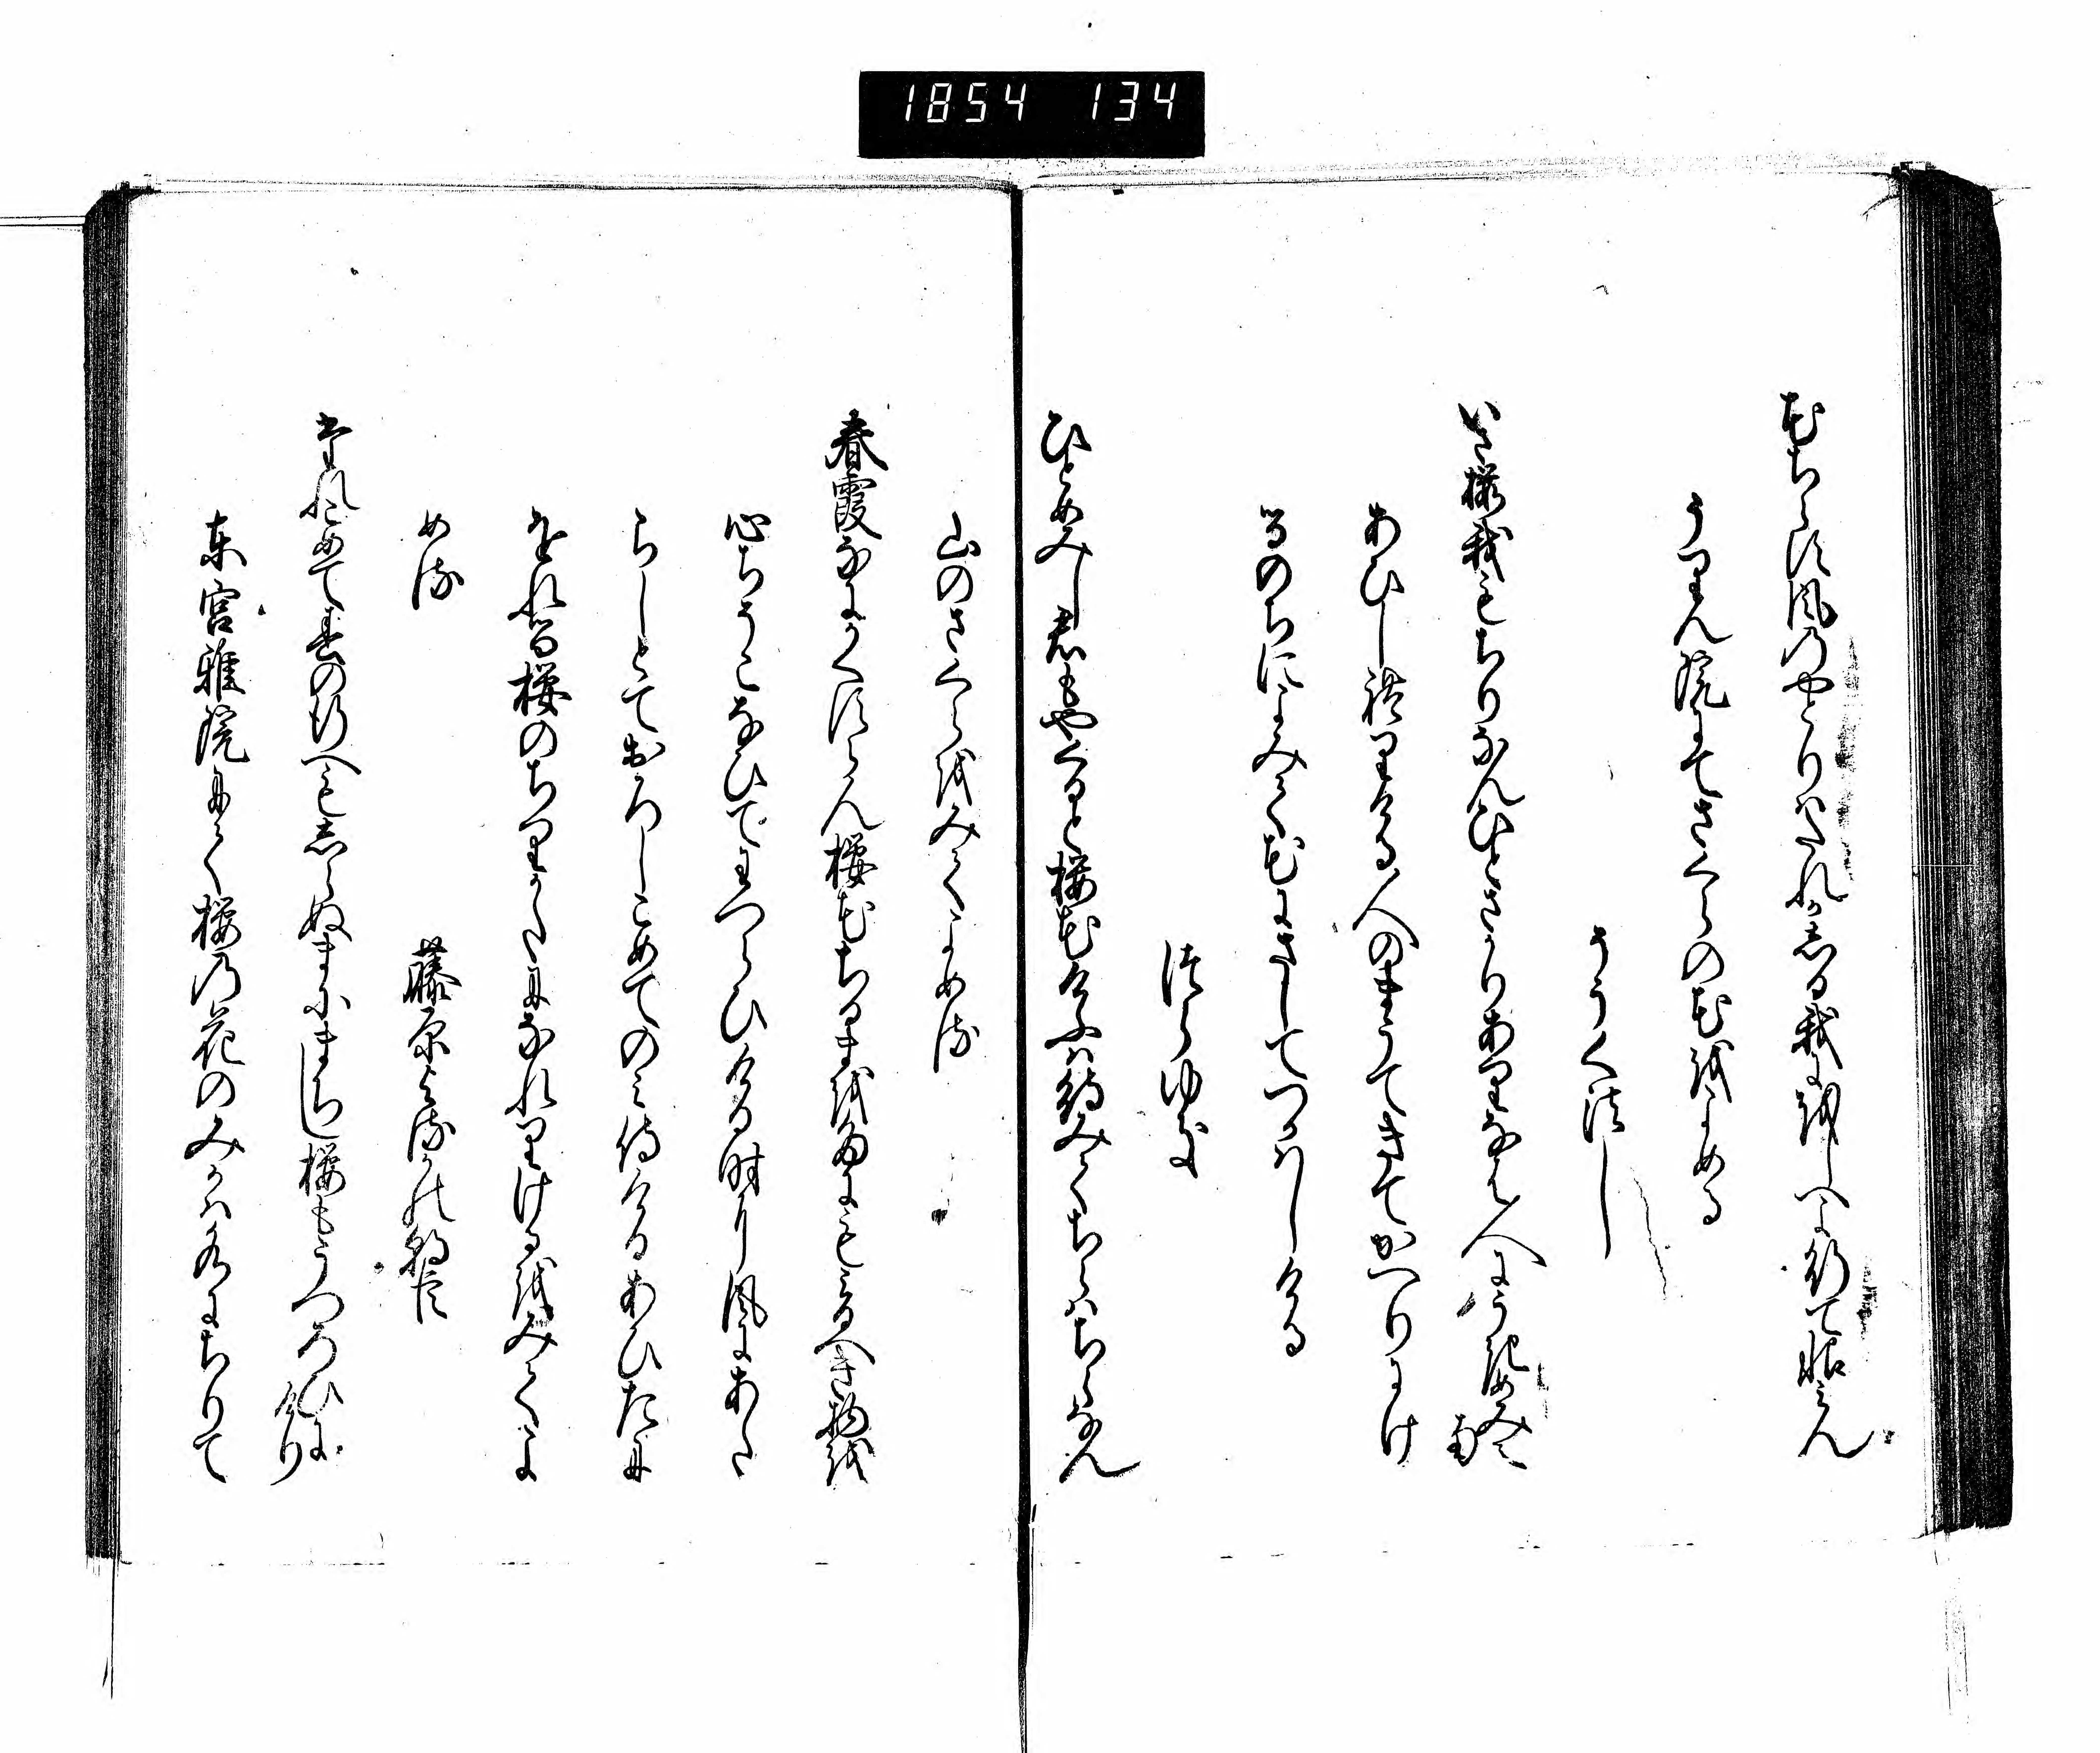 1854 134
花ちらす風のやとりはたれかしる我にをしへよ行てうらみん
うりん院にてさくらの花をよめる
そうく法し
いさ桜我もちりなんひとさかりありなは人にうきめみえなん
あひしれりける人のまうてきてかへりにけ
るのちによみて花にさしてつかはしける
つらゆき
ひとめみし君もやくると桜花けふは待みてちらはちらなん
山のさくらをみてよめる
春霞なにかくすらん桜花ちるまをたにもみるへき物を
心ちそこなひてわつらひける時に風にあた
らしとておろしこめてのみ侍けるあひたに
をれる桜のちりかたになれりけるをみてよ
める
藤原よるかの朝臣
たれこめて春の行へもしらぬまにまちし桜もうつろひにけり
東宮雅院にて桜の花のみかは水にちりて